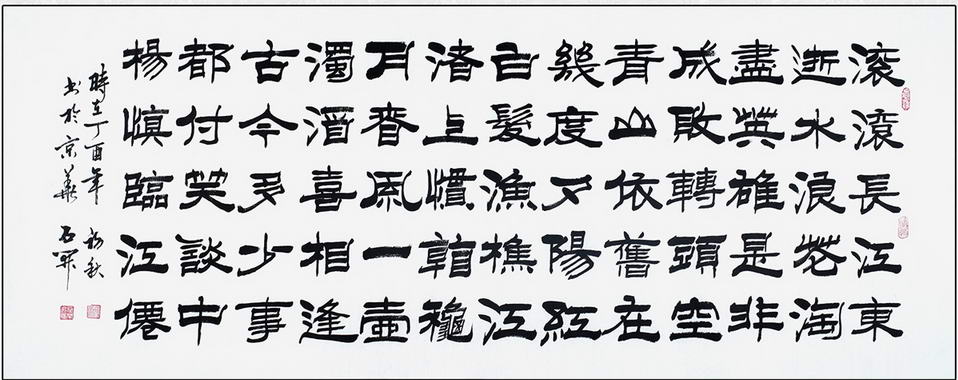 滾滾長江東
逝水浪花淘
盡英雄是非
成敗轉頭空
青山依舊在
幾度夕陽紅
白髮漁樵江
渚上慣看龝
月春風一壺
濁酒喜相逢
古今多少事
都付笑談中
楊慎臨江僊
時在丁酉年初秋
書於京華